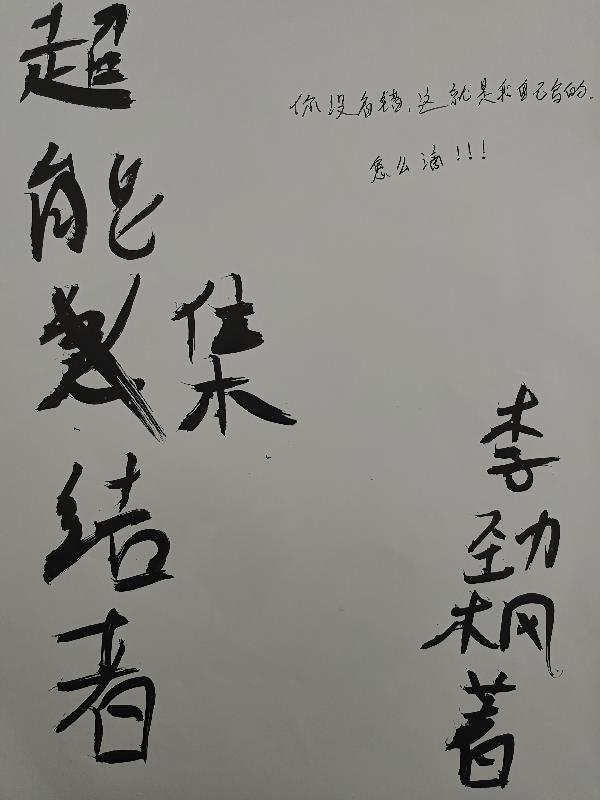 超能集结者
你没看错，这就是我自己写的.
怎么滴！！！
李劲枫著